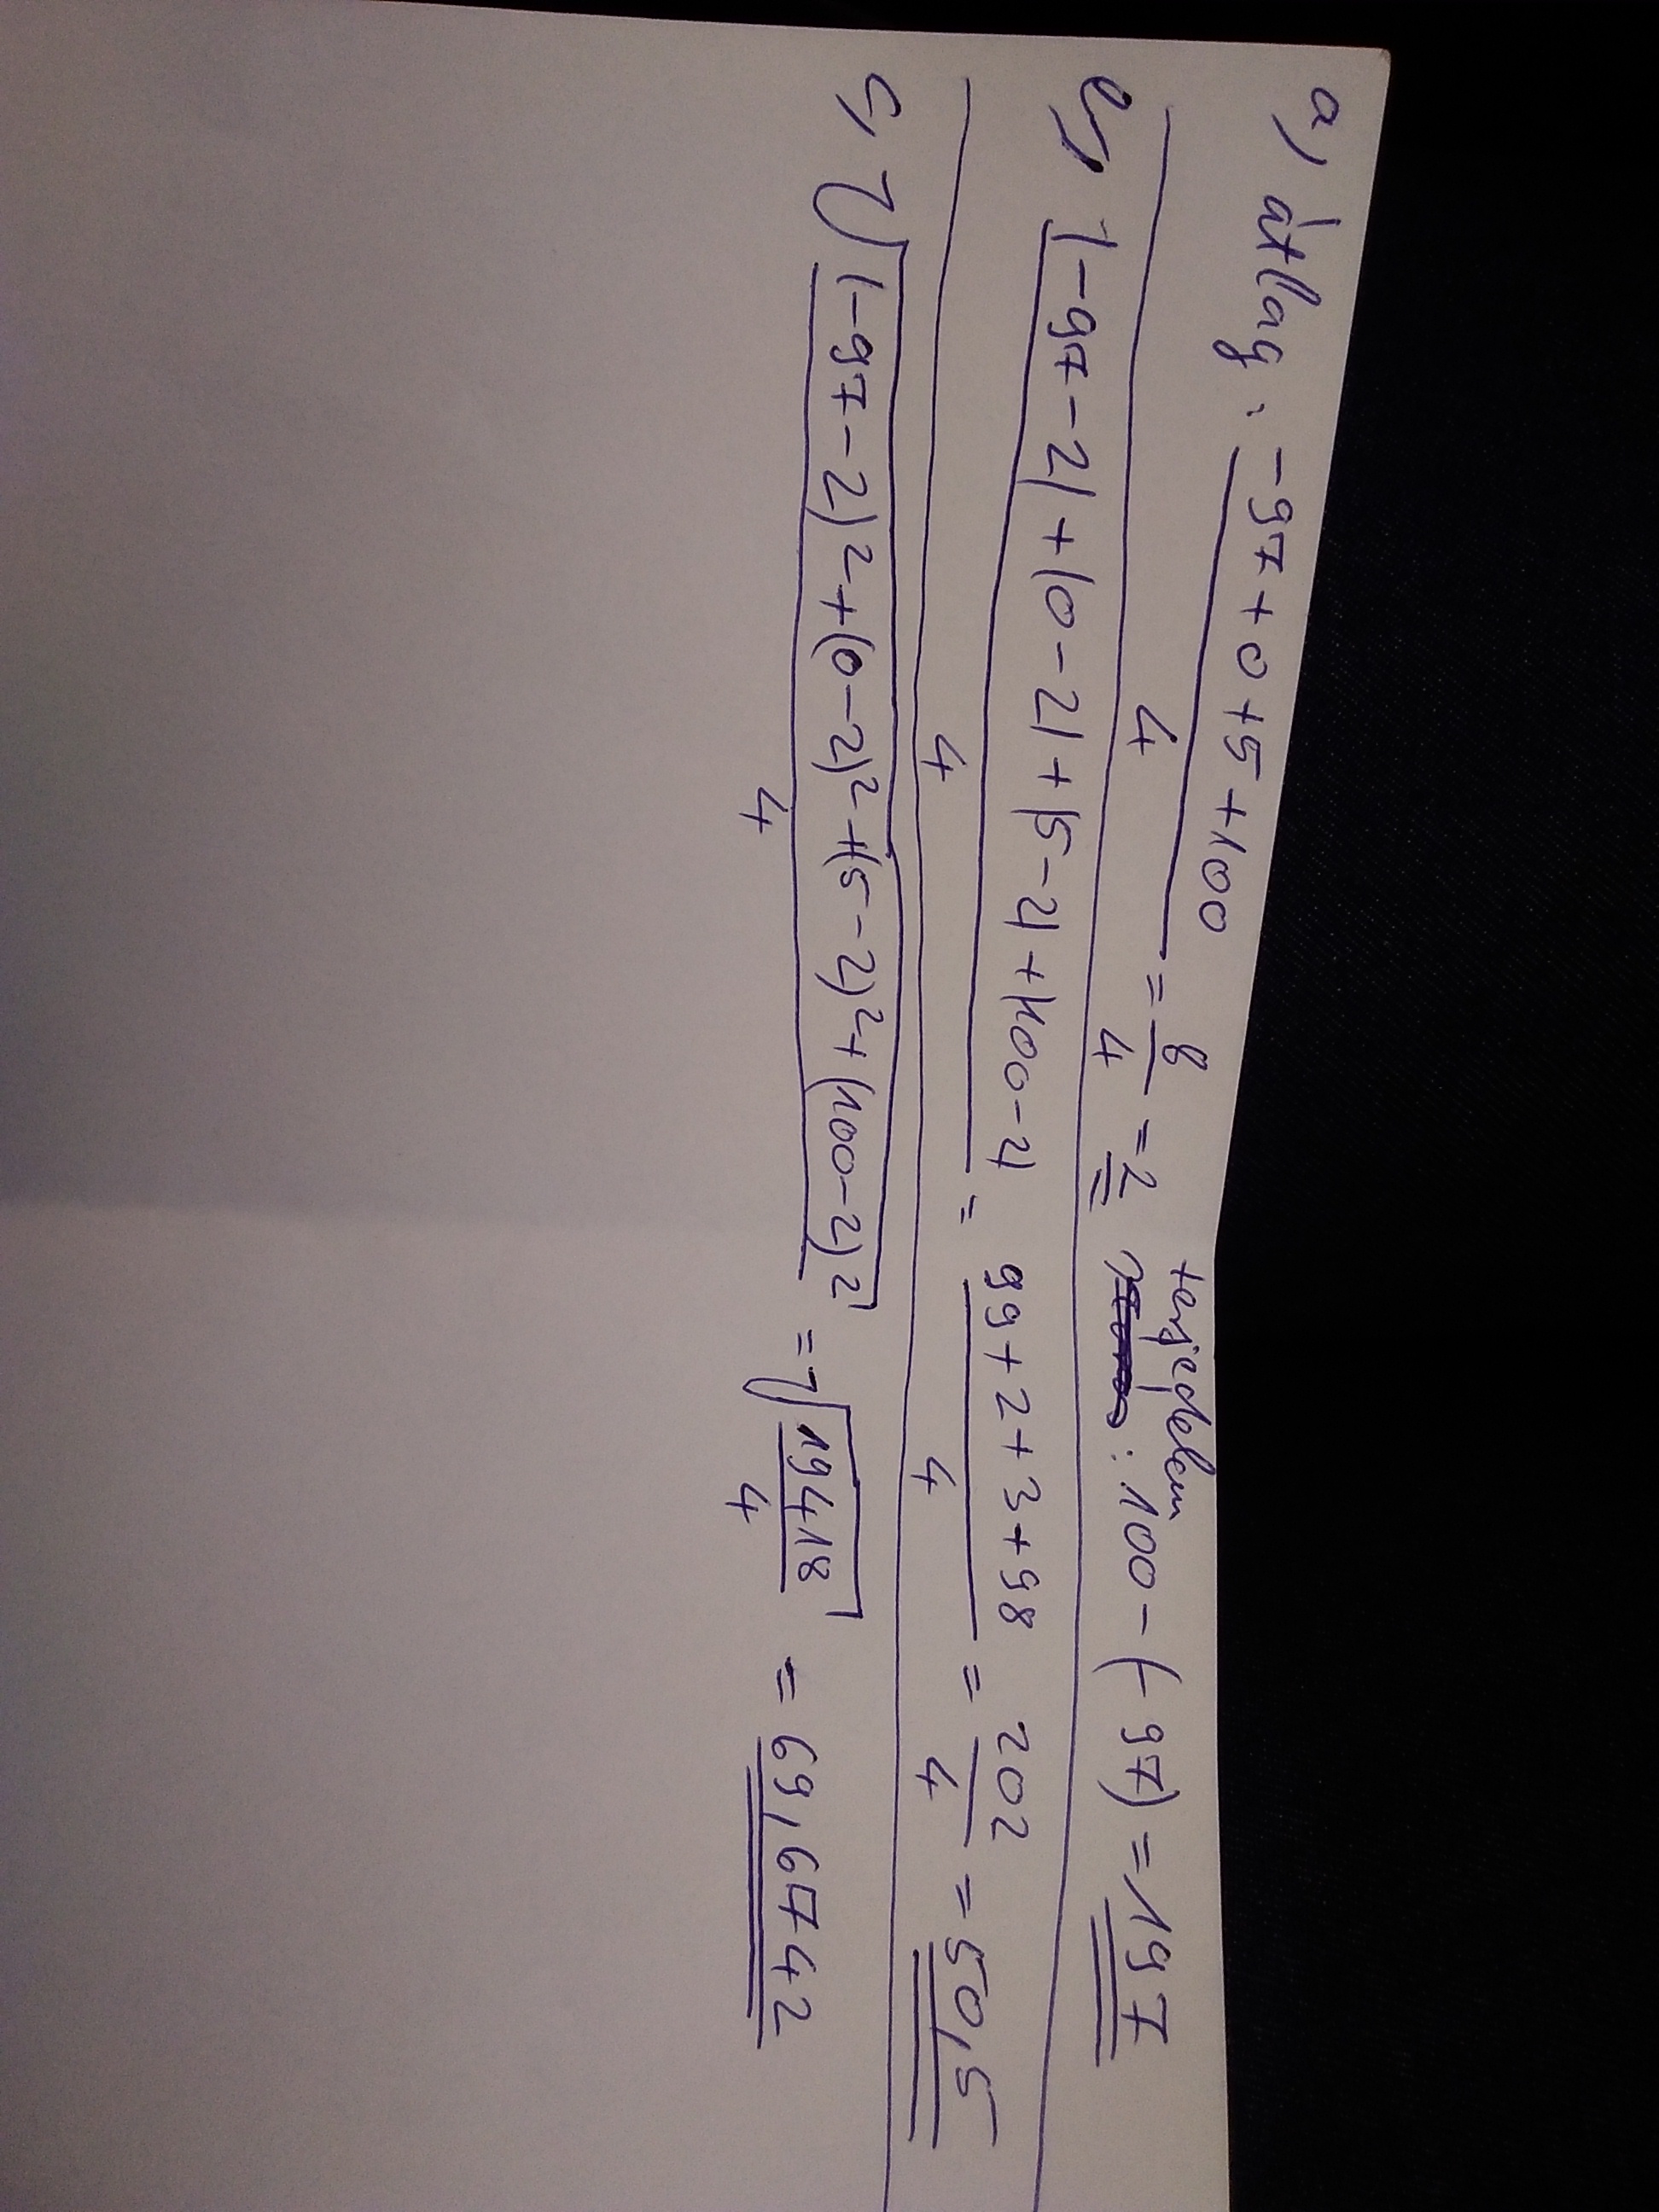 a) átlag: (-97+0+5+100)/4 = 8/4 = 2 terjedelem: 100-(-97) = 197
b) (|-97-2|+|0-2|+|5-2|+|100-2|)/4 = (99+2+3+98)/4 = 202/4 = 50,5
c) √(((-97-2)²+(0-2)²+(5-2)²+(100-2)²)/4) = √(19418/4) = 69,6742